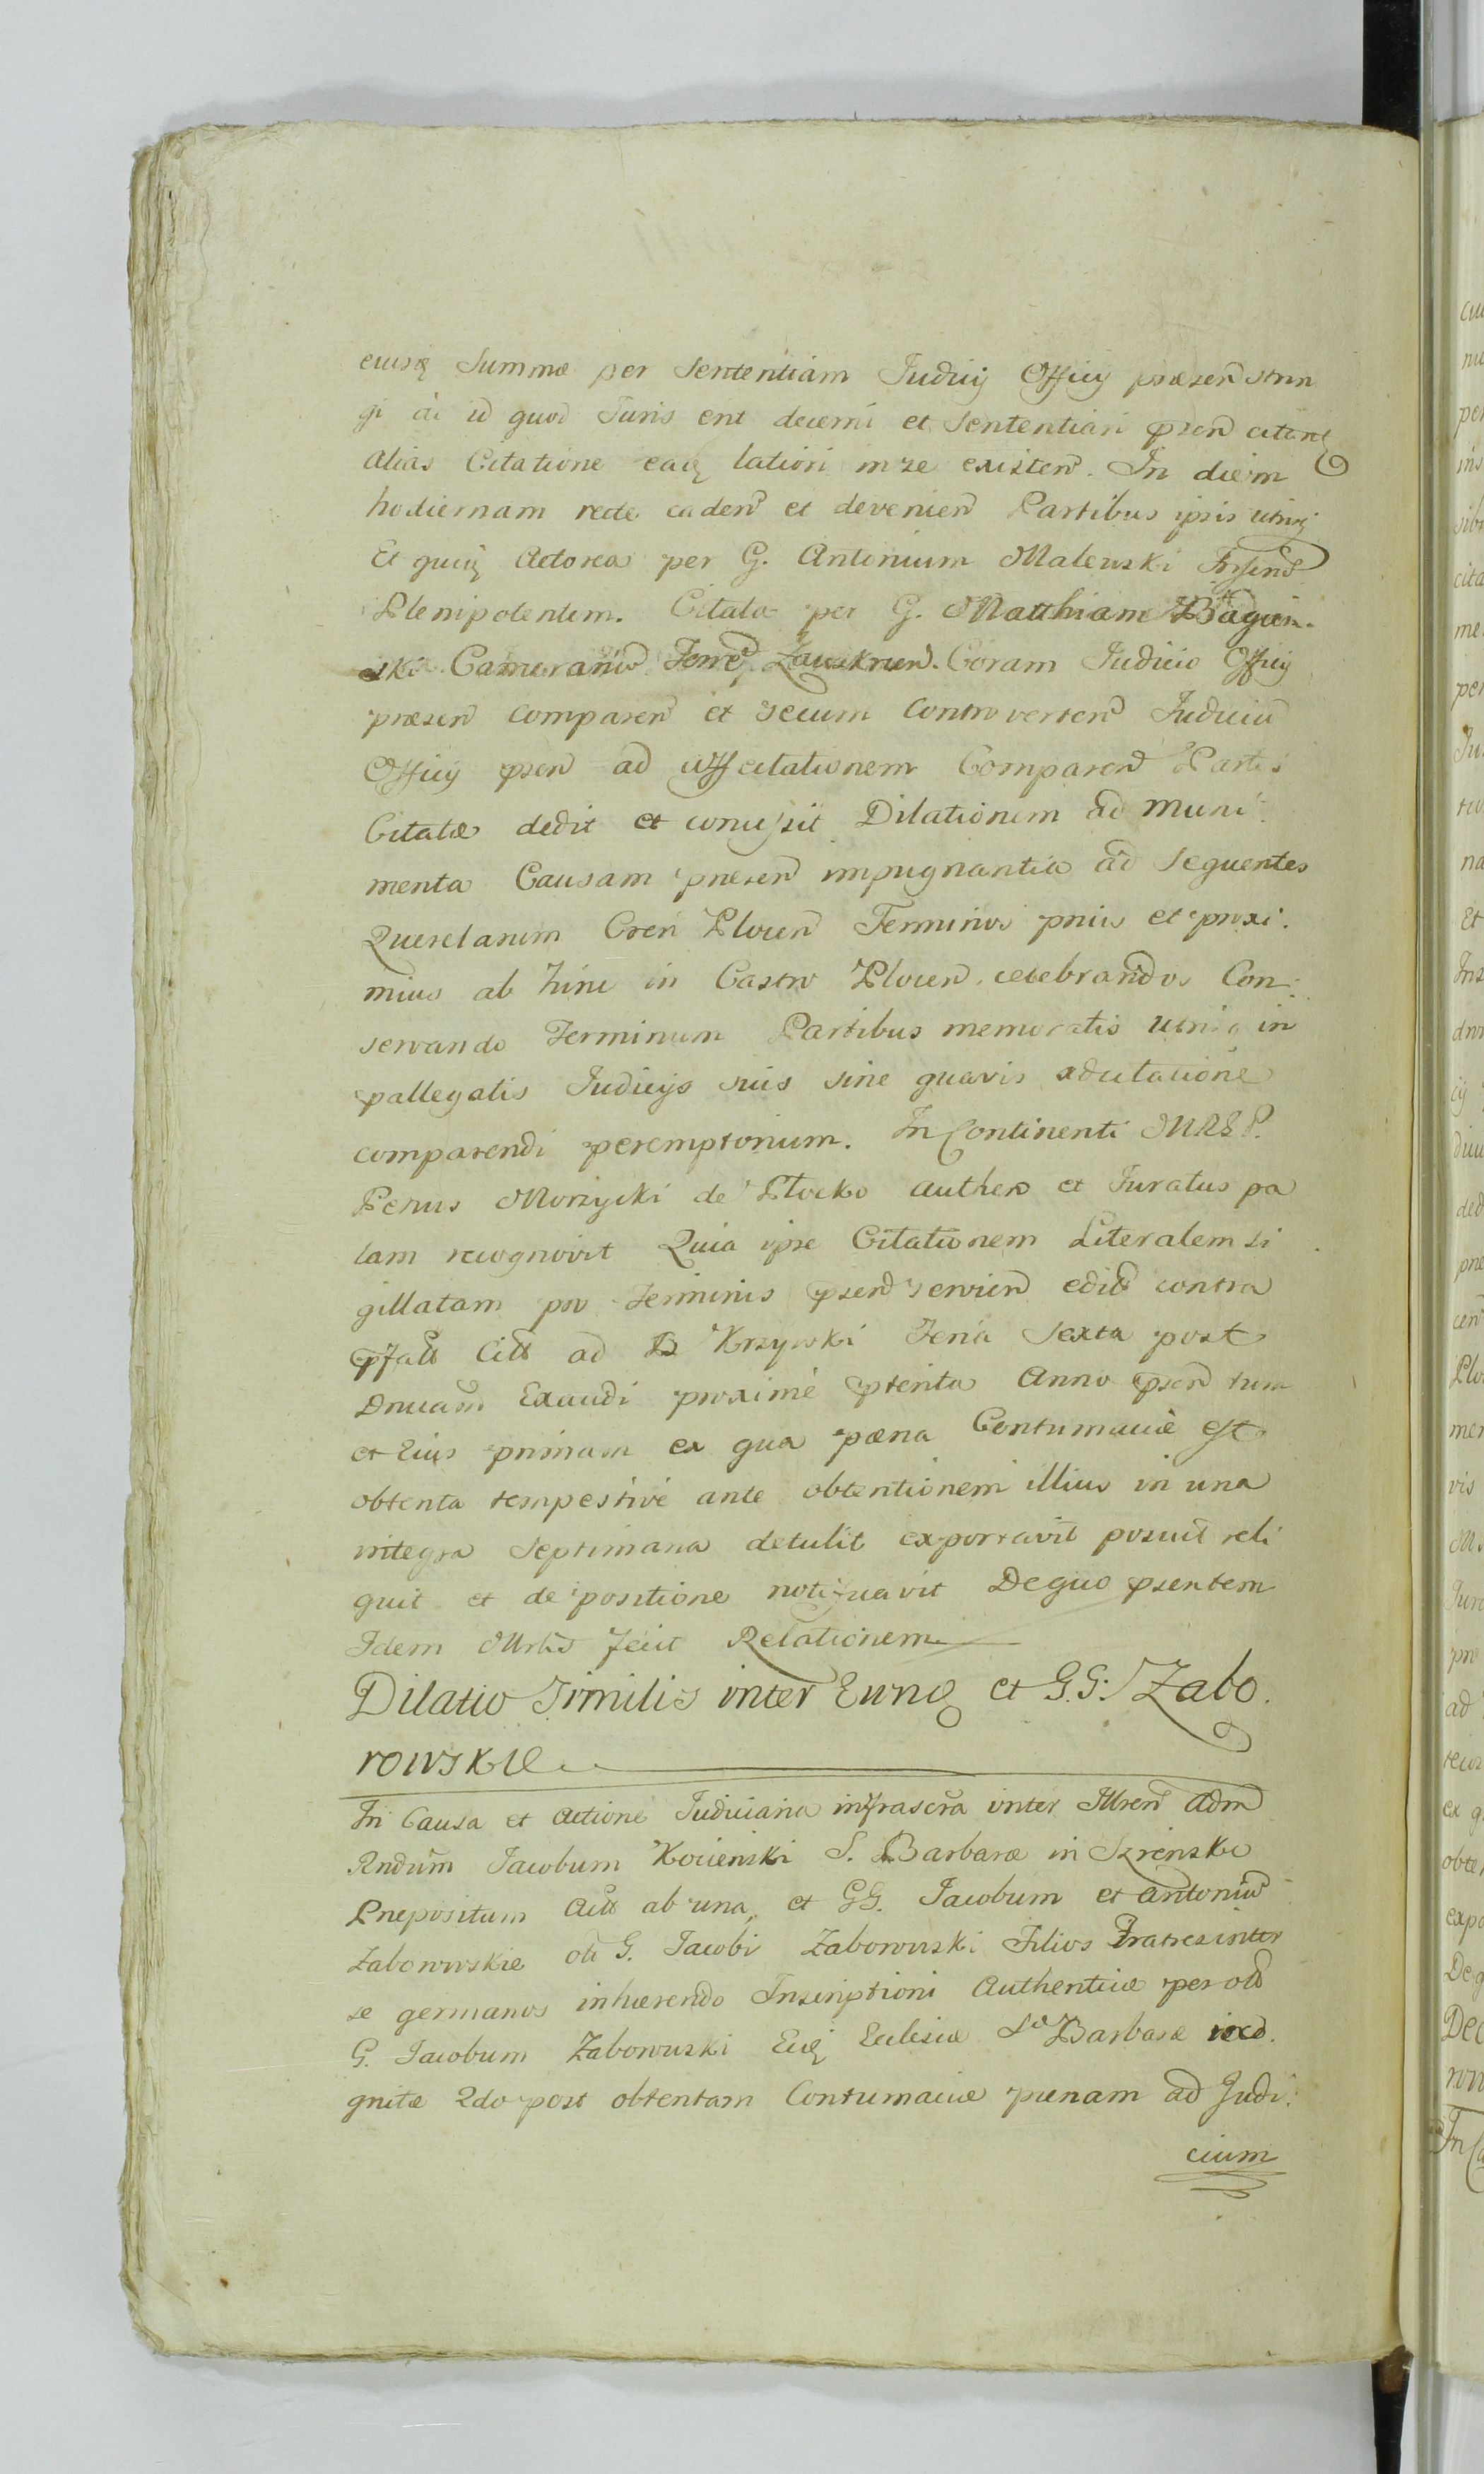 eiusq Summæ per Sententiam Judicij Officij præsen strin
gi ac id quod Juris erit decerni et Sententiari præn citan
alias Citatione eadq latiori in se existen. In diem
hodiernam recte caden et devenien Partibus ipsis utrisq
Et quidq Actorea per G. Antonium Malewski
Plenipotentem. Citata per G. Matthiam Bagien.
ski Camerariū Terræ Zawskrnen. Coram Judicio Officij
præsen comparen et secum controverten Judiciū
Officij præn ad affectationem Comparen Partis
Citatæ dedit et concessit Dilationem ad muni.
menta Causam præsen impugnantia ad sequentes
Querelarum Cren Plocen Terminos prius et proxi.
mius ab hinc in Castro Plocen celebrandos Con:
servando Terminum Partibus memoratis utrisq in
pallegatis Judicijs suis sine quavis adcitatione
comparendi peremptorium. In Continenti MRSP.
Petrus Morzycki de Plocko authen et Juratus pa
lam recognovit Quia ipse Citationem Literalem si
gillatam pro Terminis præn servien edit contra
pfatt Citt ad B Krzywki Feria Sexta post
Dnicam Exaudi proxime pterita Anno præn tum
et Eius primam ex qua pæna Contumaciæ est
obtenta tempestive ante obtentionem illius in una
integra Septimana detulit exportavit posuit reli
quit et de positione notificavit De quo psentem
Idem Mrlis fecit Relationem
Dilatio Similis inter Eundq et G.G: Zabo.
rowskie
In Causa et actione Judiciaria infrascra inter Illren adm
Rndum Jacobum Kocienski S. Barbaræ in Szrensko
Præpositum Actt ab una, et GG. Jacobum et Antoniū
Zaborowskie oli G. Jacobi Zaborowski Filios Fratres inter
se germanos inhærendo Inscriptioni Authenticæ per oli
G. Jacobum Zaborowski Eidq Ecclesiæ Sæ Barbaræ reco.
gnitæ 2do post obtentam Contumaciæ pænam ad Judi:
cium